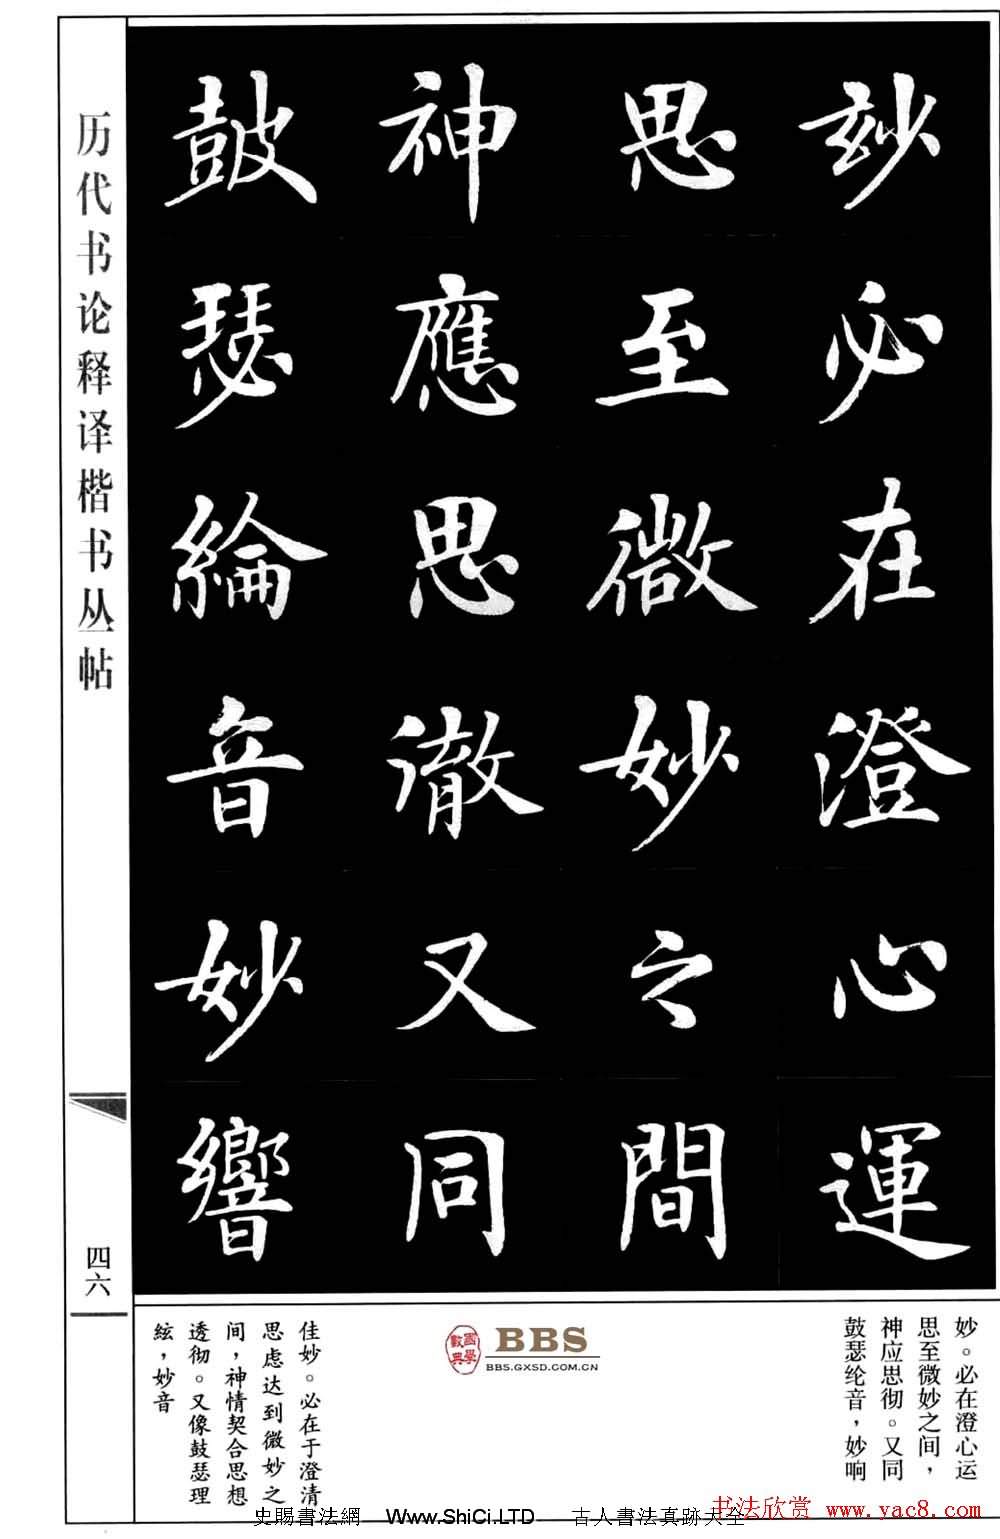 玅必在澄心運
思至微妙之間
神應思徹又同
鼓瑟綸音妙響
历代书论释译楷书丛帖
四六
妙。必在澄心运
思至微妙之间，
神应思彻。又同
鼓瑟纶音，妙响
佳妙。必在于澄清
思虑达到微妙之
间，神情契合思想
透彻。又像鼓瑟理
絃，妙音
國學數典
BBS
BBS.GXSD.COM.CN
书法欣赏 www.yac8.com
史賜書法網 Www.ShiCi.LTD 古人書法真跡大全